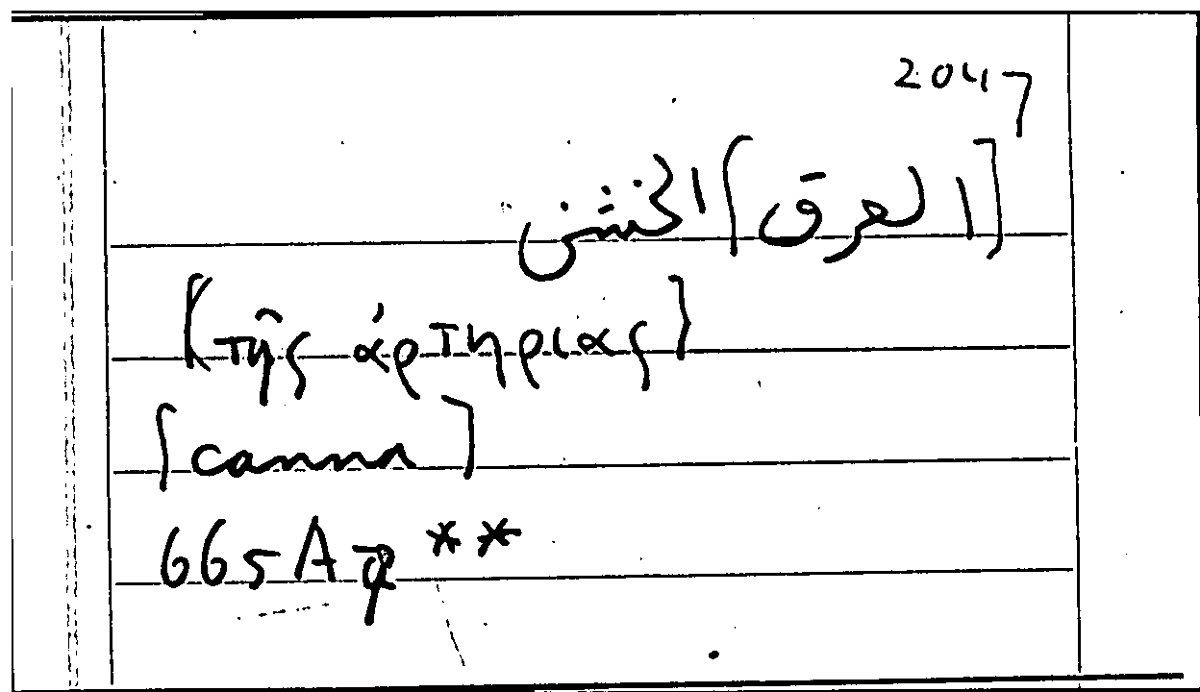 2047
[العرق] الخشن
[τῆς ἀρτηριας]
[canna]
665A **